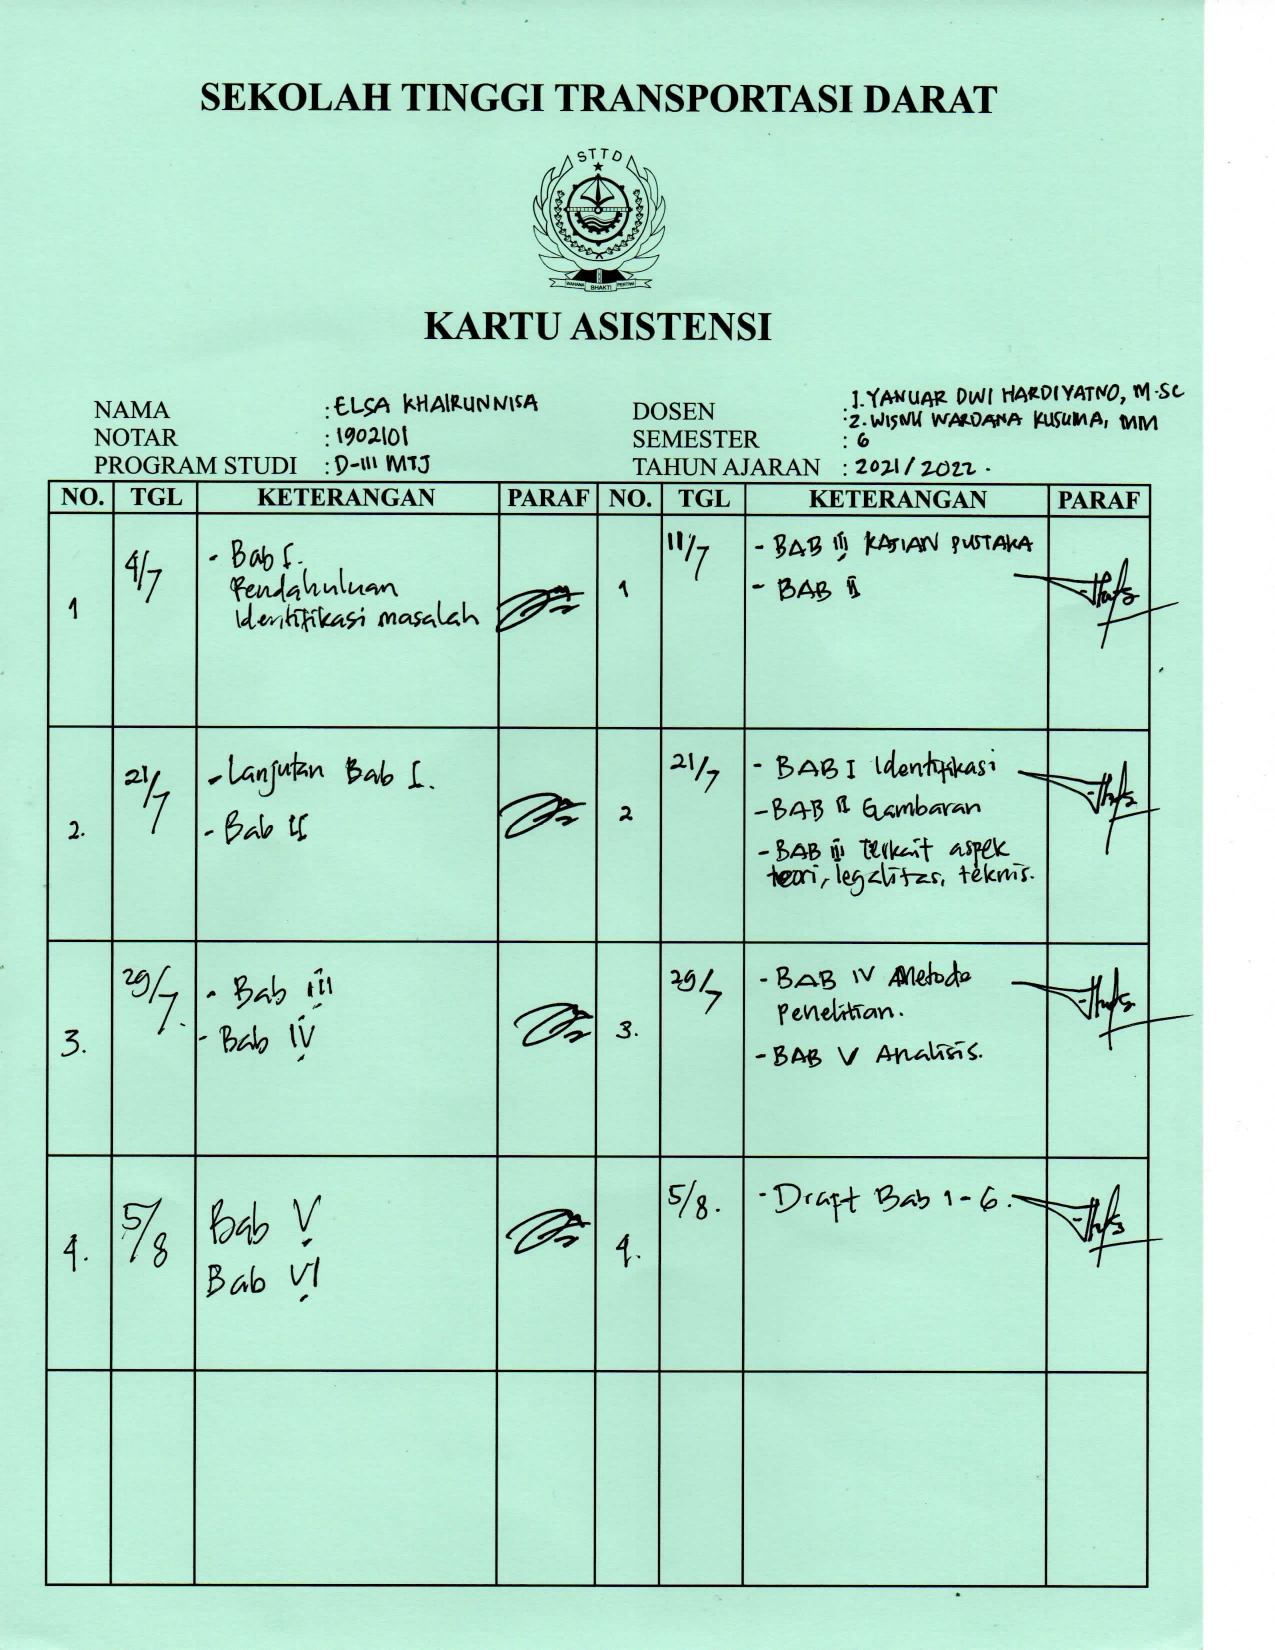 SEKOLAH TINGGI TRANSPORTASI DARAT
STTD
WAHANA BHAKTI PERTIWI
KARTU ASISTENSI
NAMA : ELSA KHAIRUNNISA
NOTAR : 1902101
PROGRAM STUDI : D-III MTJ
DOSEN : 1. YANUAR DWI HARDIYATNO, M.SC
2. WISNU WARDANA KUSUMA, MM
SEMESTER : 6
TAHUN AJARAN : 2021/2022.
NO. TGL KETERANGAN PARAF NO. TGL KETERANGAN PARAF
1 4/7 - Bab I.
Pendahuluan
Identifikasi masalah
1 11/7 - BAB III KAJIAN PUSTAKA
- BAB II
2. 21/7 - Lanjutan Bab I.
- Bab II
2 21/7 - BAB I Identifikasi
- BAB II Gambaran
- BAB III Terkait aspek
teori, legalitas, teknis.
3. 29/7. - Bab III
- Bab IV
3. 29/7 - BAB IV Metode
Penelitian.
- BAB V Analisis.
4. 5/8 Bab V
Bab VI
4. 5/8. - Draft Bab 1-6.